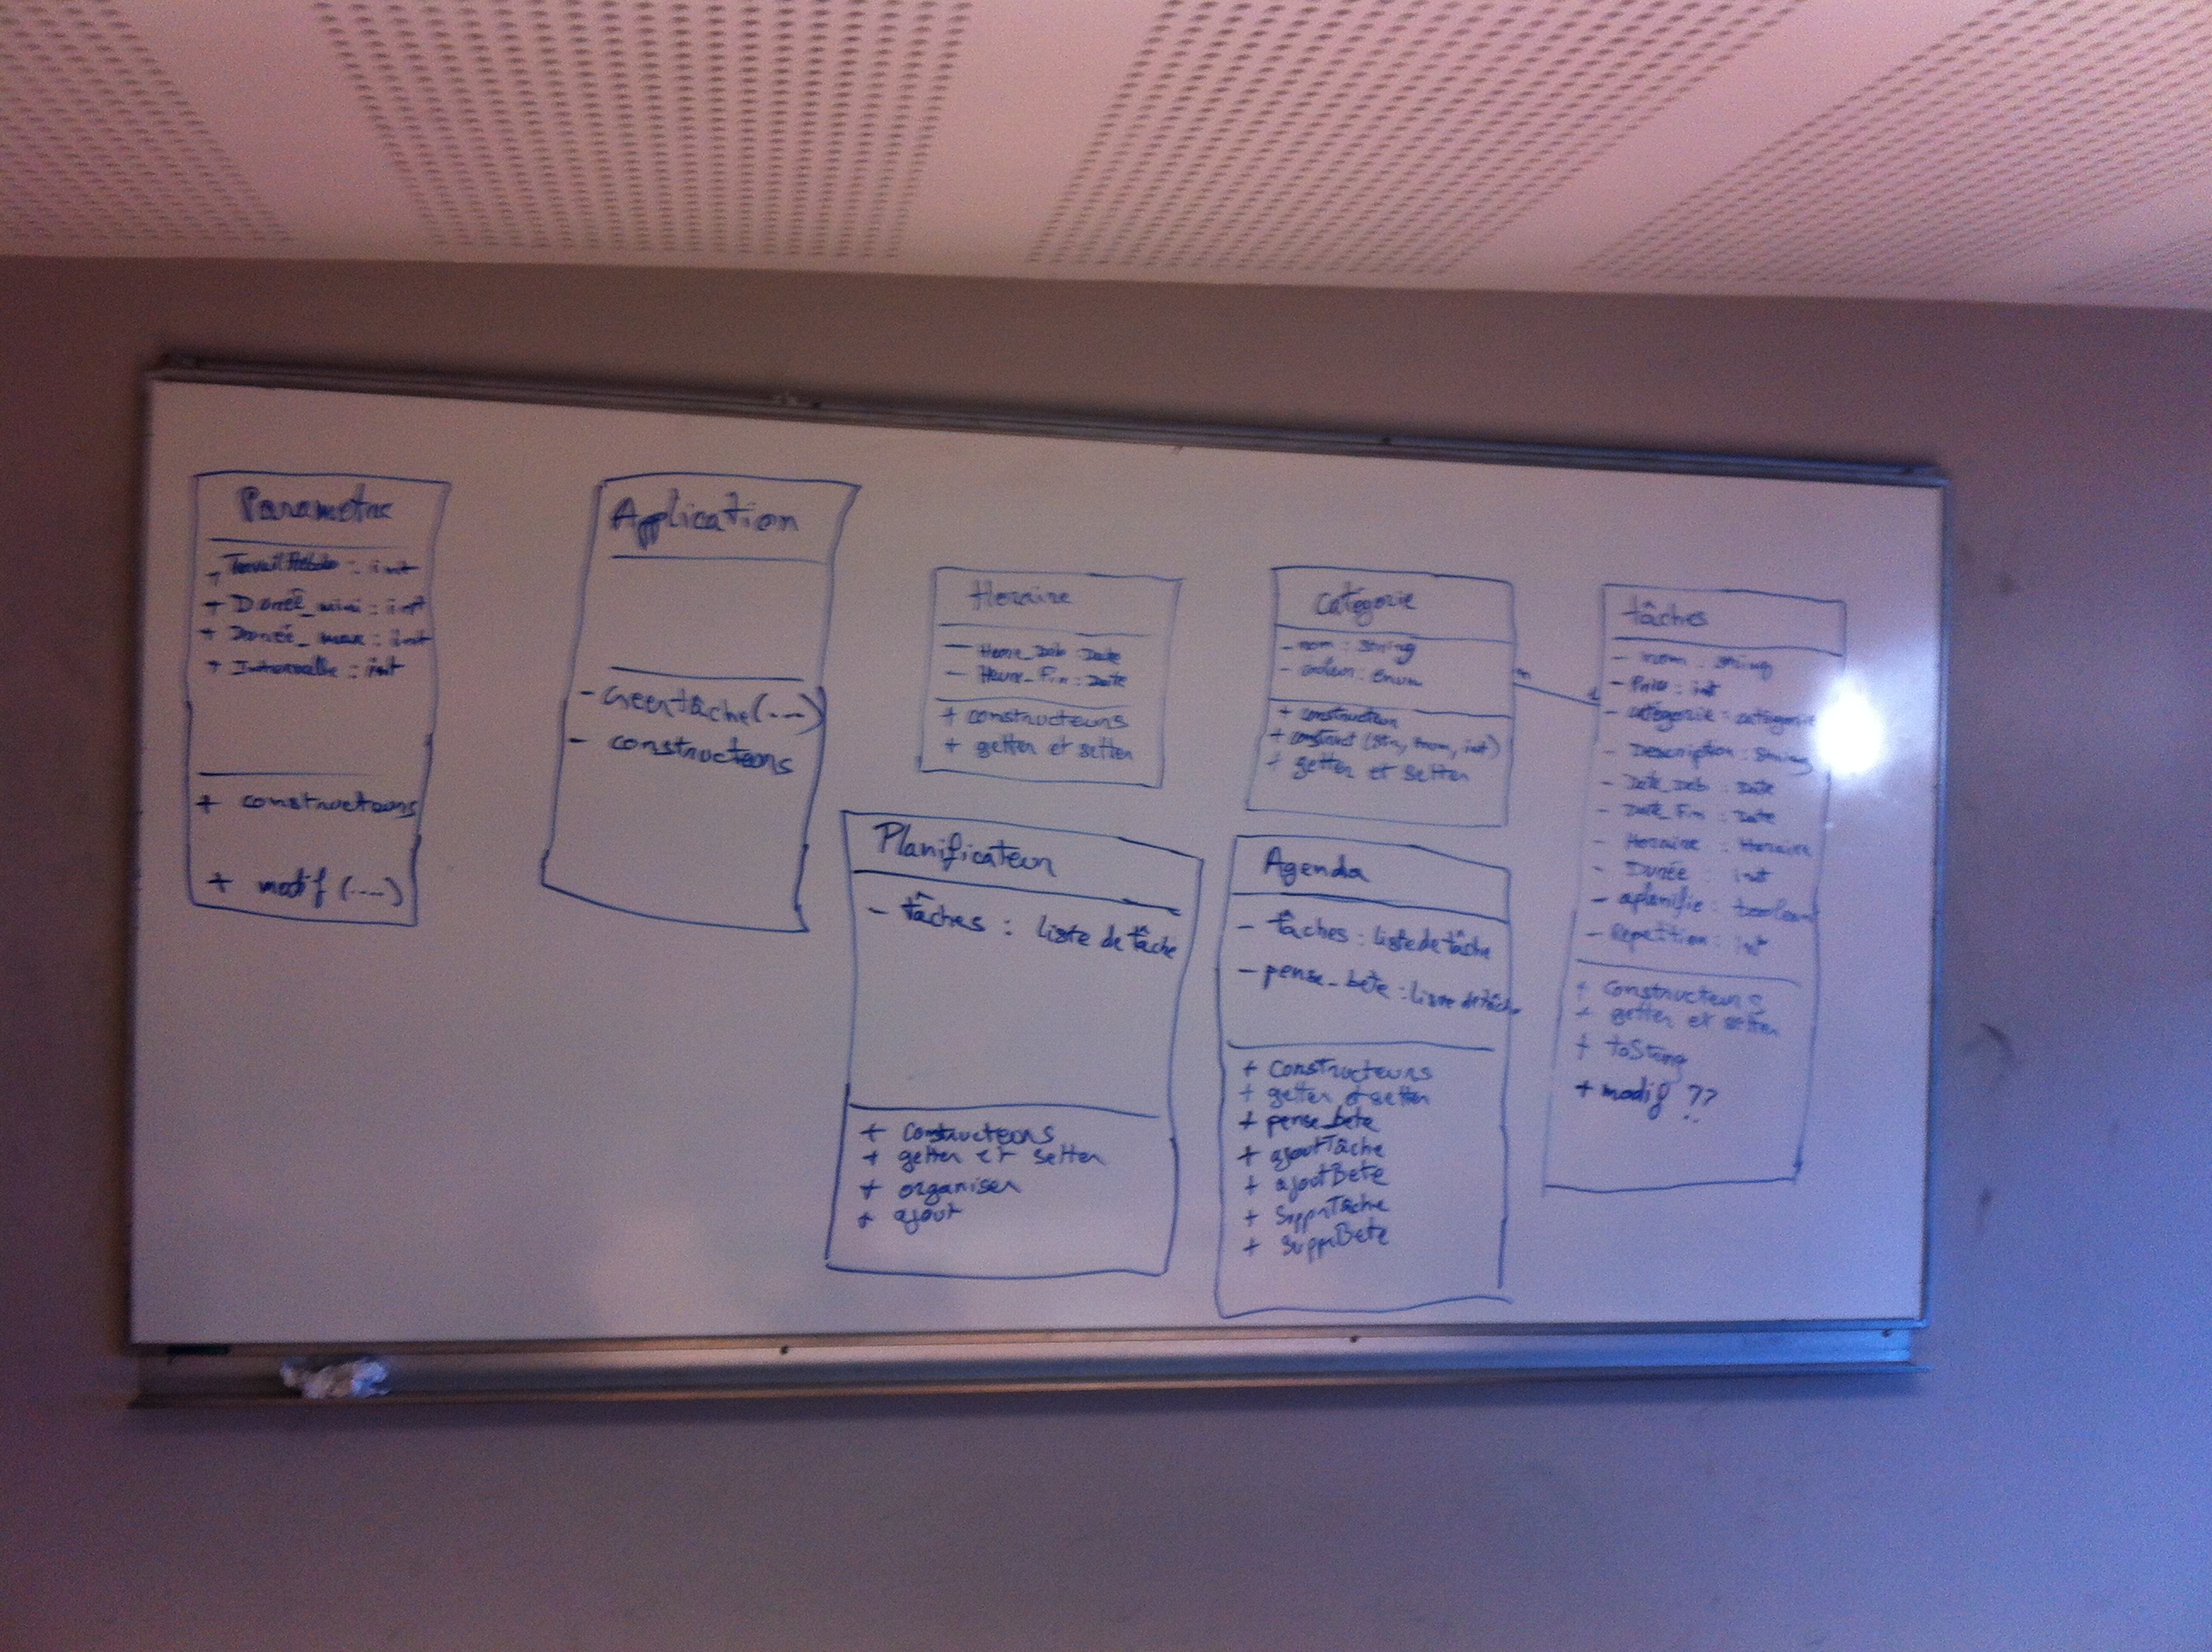 Parametre
+ Travail Hebdo : int
+ Durée_mini : int
+ Durée_max : int
+ Intervalle : int
+ constructeurs
+ modif (....)
Application
- Creertâche(....)
- constructeurs
Horaire
- Heure_Deb : Date
- Heure_Fin : Date
+ constructeurs
+ getter et setter
catégorie
- nom : string
- couleur : enum
+ constructeur
+ construct (Strin, enum, int)
+ getter et setter
n
1
tâches
- nom : string
- Prio : int
- catégorie : catégorie
- Description : String
- Date_Deb : Date
- Date_Fin : Date
- Horaire : Horaire
- Durée : int
- aplanifie : boolean
- Repetition : int
+ constructeurs
+ getter et setter
+ toString
+ modif ??
Planificateur
- tâches : liste de tâche
+ constructeurs
+ getter et setter
+ organiser
+ ajout
Agenda
- tâches : liste de tâche
- pense_bete : liste de tâche
+ constructeurs
+ getter et setter
+ pense_bete
+ ajoutTâche
+ ajoutBete
+ SupprTâche
+ supprBete